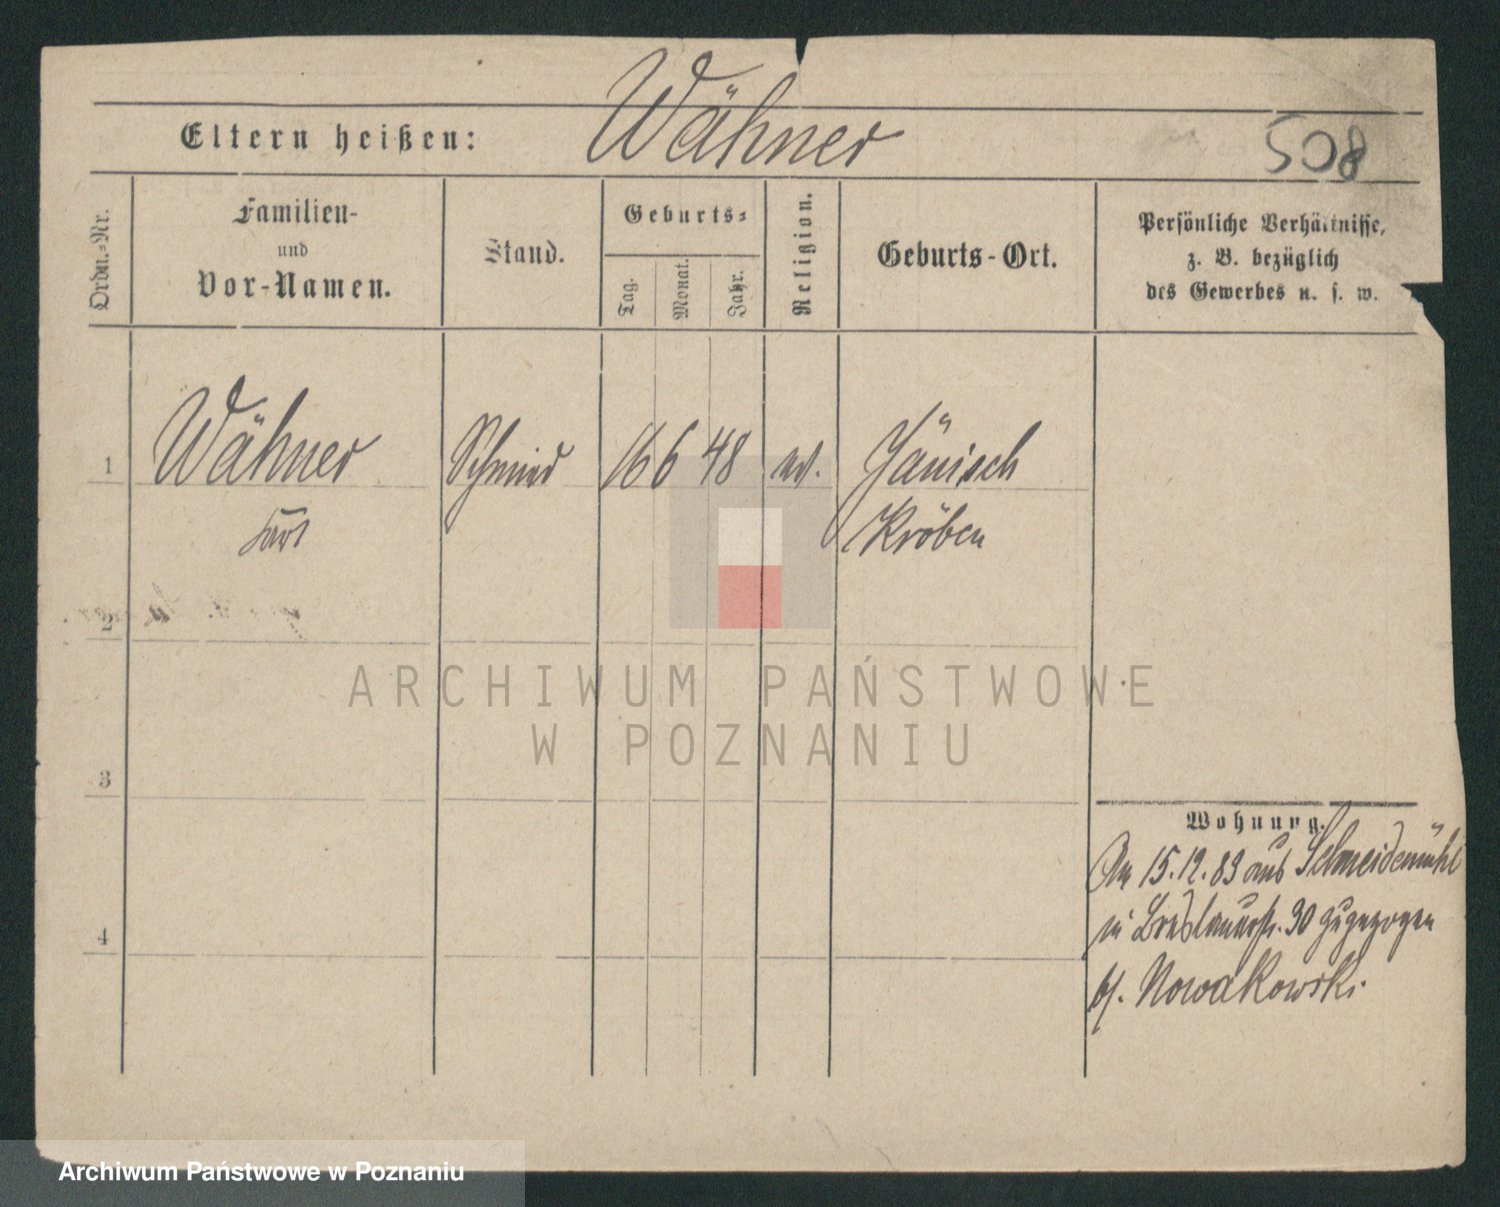 Eltern heißen: Wähner 508
Ordn.-Nr.
Familien-
und
Vor-Namen.
Stand.
Geburts-
Tag.
Monat.
Jahr.
Religion.
Geburts-Ort.
Persönliche Verhältnisse,
z. B. bezüglich
des Gewerbes u. s. w.
1 Wähner Schmied 16 6 48 ev. Jänisch
Kröben
2
3
4
Wohnung.
Am 15.12.83 aus Schneidemühl
in Breslauerstr. 30 zugezogen
b/. Nowakowski.
ARCHIWUM PAŃSTWOWE
W POZNANIU
Archiwum Państwowe w Poznaniu